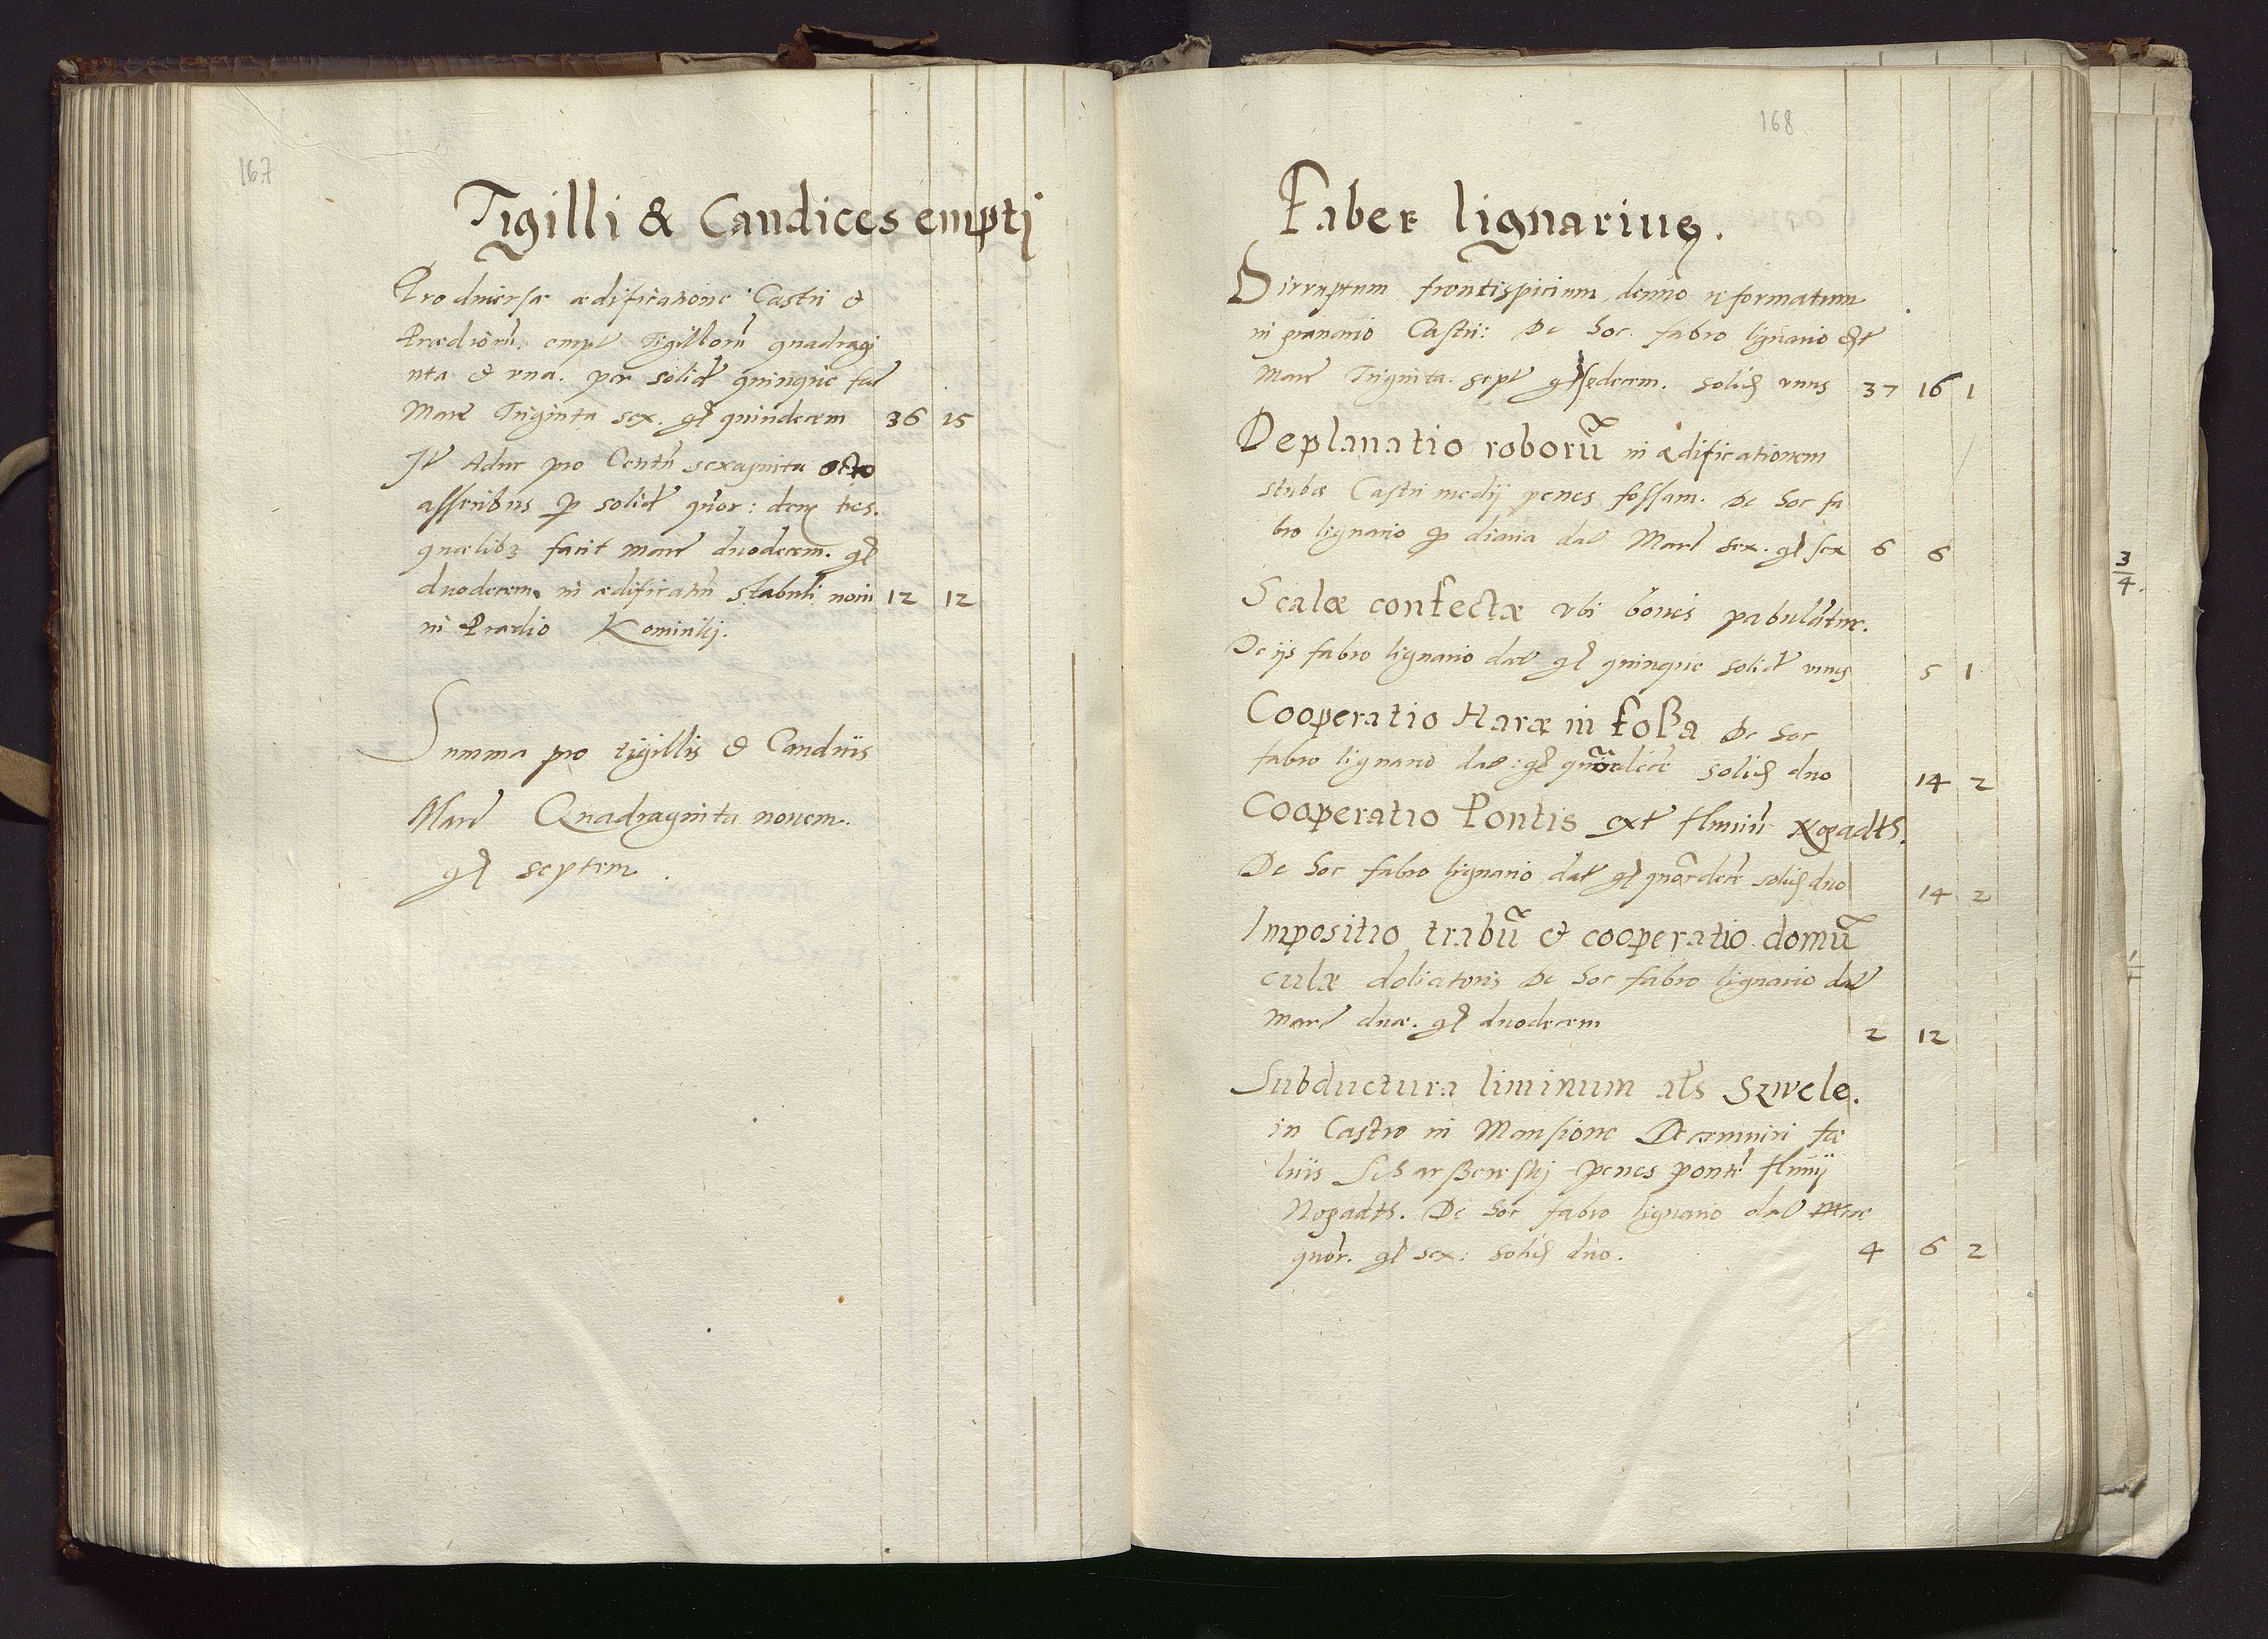 167
Tigilli & Caudices emptj
Pro diuersa ædificatione Castri et
Prædiorũ. empt Tigillorũ quadragi
nta et vna. per solid quinque fac
Marc Triginta sex. gř quindecem 36 15
It Adhuc pro Centũ sexaginta octo
asseribus p solid quor: den tres.
quælibz facit marc duodecem. gř
duodecem. in ædificatũ stabuli noui 12 12
in Prædio Kominkj.
Summa pro tigillis et Caudiis
Marc Quadraginta nouem.
gř septem.
168
Faber lignarius.
Dirruptum frontispicium, denuo reformatum
in granario Castri: De hoc fabro lignario
Marc Triginta. sept gř sedecem. solid vnus 37 16 1
Deplanatio roborũ in ædificationem
stubæ Castri medij penes fossam. De hoc fa
bro lignario p diaria dat Marc sex. gř sex 6 6
Scalæ confectæ vbi boues pabulãtur.
De ijs fabro lignario dat gř quinque solid vnus 5 1
Cooperatio Haræ in foßa De hoc
fabro lignario dat: gř quõrdecẽ solid duo 14 2
Cooperatio Pontis ext fluuiũ Nogadth.
De hoc fabro lignario dat gř quõrdecẽ solid duo 14 2
Impositio trabũ et cooperatio domũ
culæ doliatoris De hoc fabro lignario dat
Marc duæ. gř duodecem 2 12
Subductura liminum als Szwele.
in Castro in Mansione De
penes pontẽ fluuij
Nogadth. De hoc fabro lignario dat mrc
quor. gř sex: solid duo. 4 6 2
3
4.